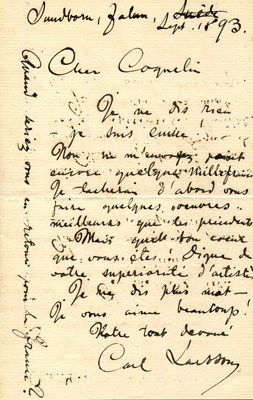 Sundborn, Falun, Suède
Sept. 1893.
Cher Coquelin
Je ne dis rien
— je suis
Non ne m'envoyez point
encore quelque
Je chercherai d'abord vous
faire quelques oeuvres
meilleures que les précédents
— Mais quel bon coeur
que vous êtes! Digne de
votre superiorité d'artiste
Je ne dis plus mot —
Je vous aime beaucoup!
Votre tout devoué
Carl Larsson
Quand serez vous en retour pour la France?